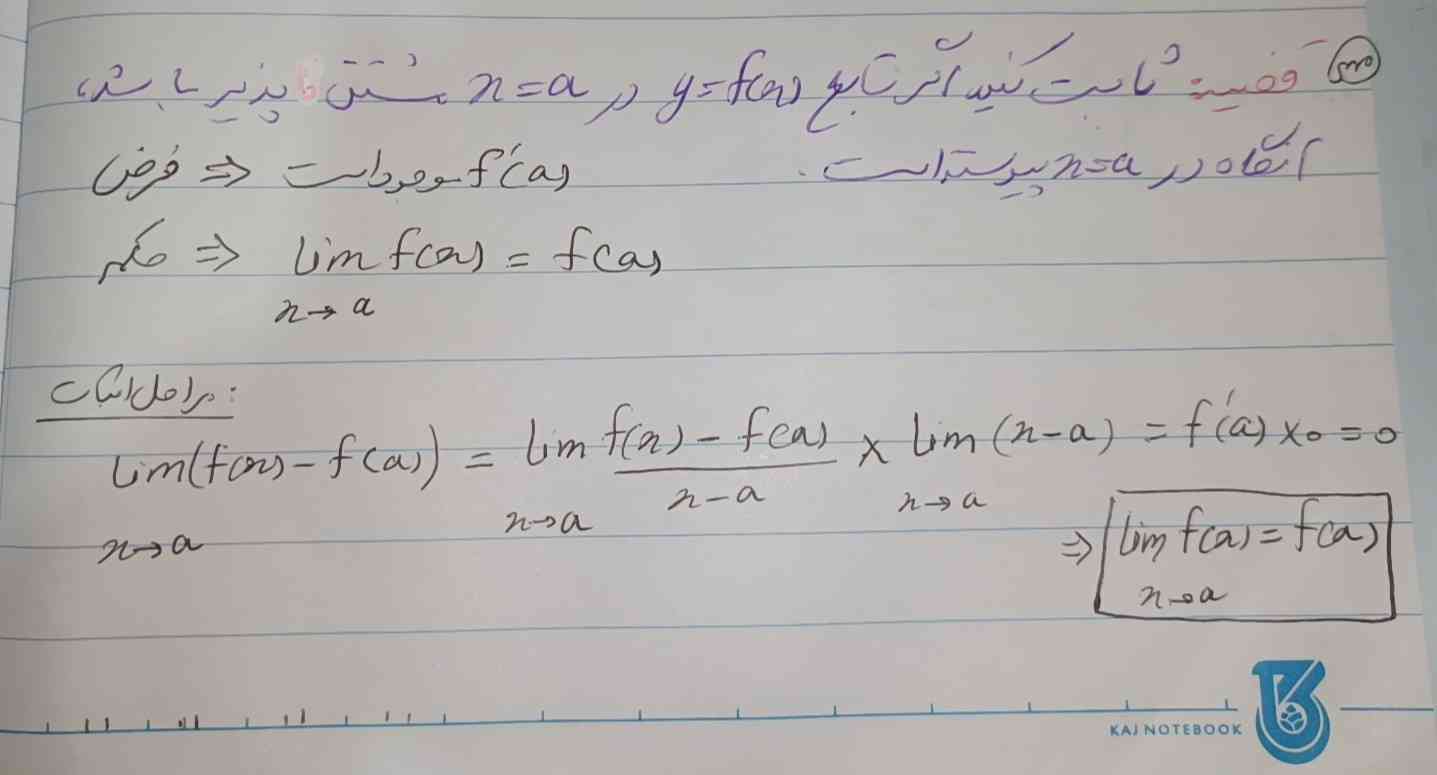 قضیه: ثابت کنید اگر تابع y=f(x) در x=a مشتق پذیر باشد،
آنگاه در x=a پیوسته است.
فرض ⇒ f'(a) موجود است
حکم ⇒ lim f(x) = f(a)
x→a
مراحل اثبات:
lim(f(x) - f(a)) = lim f(x) - f(a) / x-a × lim (x-a) = f'(a) × 0 = 0
x→a x→a x→a
⇒ lim f(a) = f(a)
x→a
KAJ NOTEBOOK